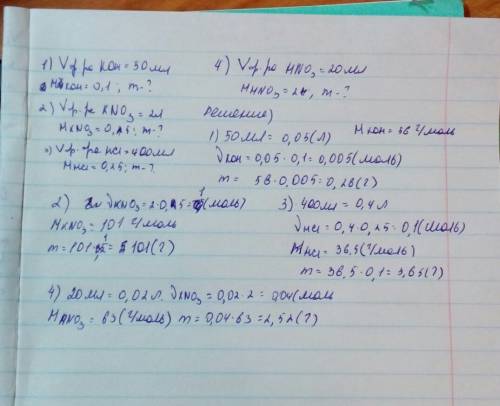 1) Vр-ра KOH = 50 мл
MKOH = 0,1 ; m-?
2) Vр-ра KNO3 = 2л
MKNO3 = 0,5 ; m-?
3) Vр-ра HCl = 400мл
MHCl = 0,25 ; m-?
4) Vр-ра HNO3 = 20мл
MHNO3 = 2, m-?
Решение)
1) 50мл = 0,05(л) MKOH = 56 г/моль
νKOH = 0,05 · 0,1 = 0,005(моль)
m = 56 · 0,005 = 0,28(г)
2) νKNO3 = 2 · 0,5 = 1(моль)
MKNO3 = 101 г/моль
m = 101 · 1 = 101(г)
3) 400мл = 0,4л
νHCl = 0,4 · 0,25 = 0,1(моль)
MHCl = 36,5(г/моль)
m = 36,5 · 0,1 = 3,65(г)
4) 20мл = 0,02л. νHNO3 = 0,02 · 2 = 0,04(моль
MHNO3 = 63(г/моль) m = 0,04 · 63 = 2,52(г)